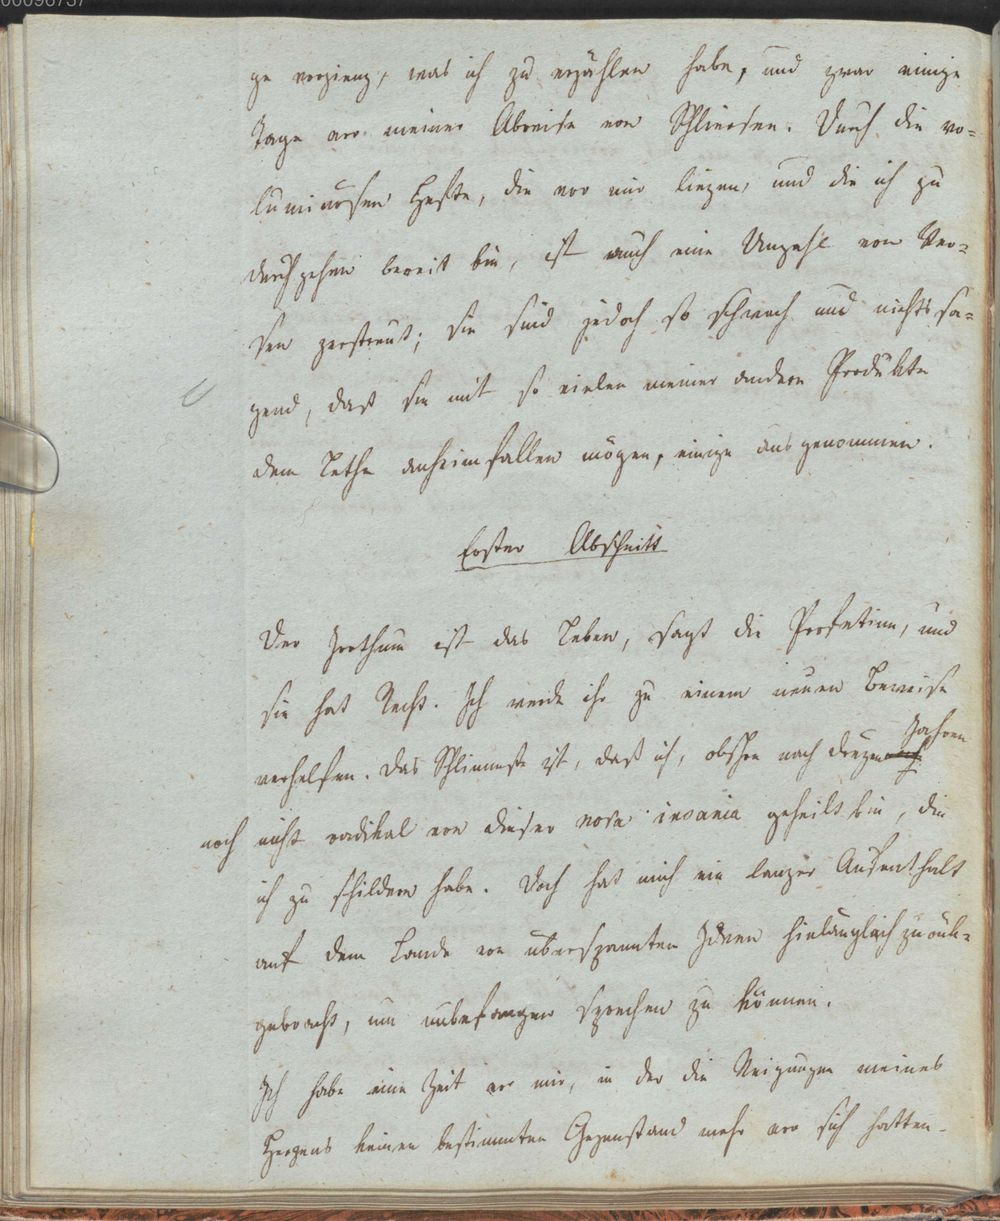 00096737
ge vorgieng, was ich zu erzählen habe, und zwar einige
Tage vor meiner Abreise von Schliersen. Durch die vo-
luminösen Hefte, die vor mir liegen, und die ich zu
durchgehen bereit bin, ist auch eine Unzahl von Ver-
sen zerstreut; sie sind jedoch so schwach und nichtssa-
gend, daß sie mit so vielen meiner andern Produkte
dem Lethe anheimfallen mögen, einige ausgenommen.
Erster Abschnitt
Der Irrthum ist das Leben, sagt die Profetinn, und
sie hat Recht. Ich werde ihr zu einem neuen Beweise
Jahren
verhelfen. Das Schlimmste ist, daß ich, obschon nach
noch nicht radikal von dieser insania geheilt bin, die
ich zu schildern habe. Doch hat mich ein langer Aufenthalt
auf dem Lande von überspannten Ideen hinlänglich zurük-
gebracht, um unbefangen sprechen zu können.
Ich habe eine Zeit vor mir, in der die Neigungen meines
Herzens keinen bestimmten Gegenstand mehr vor sich hatten.